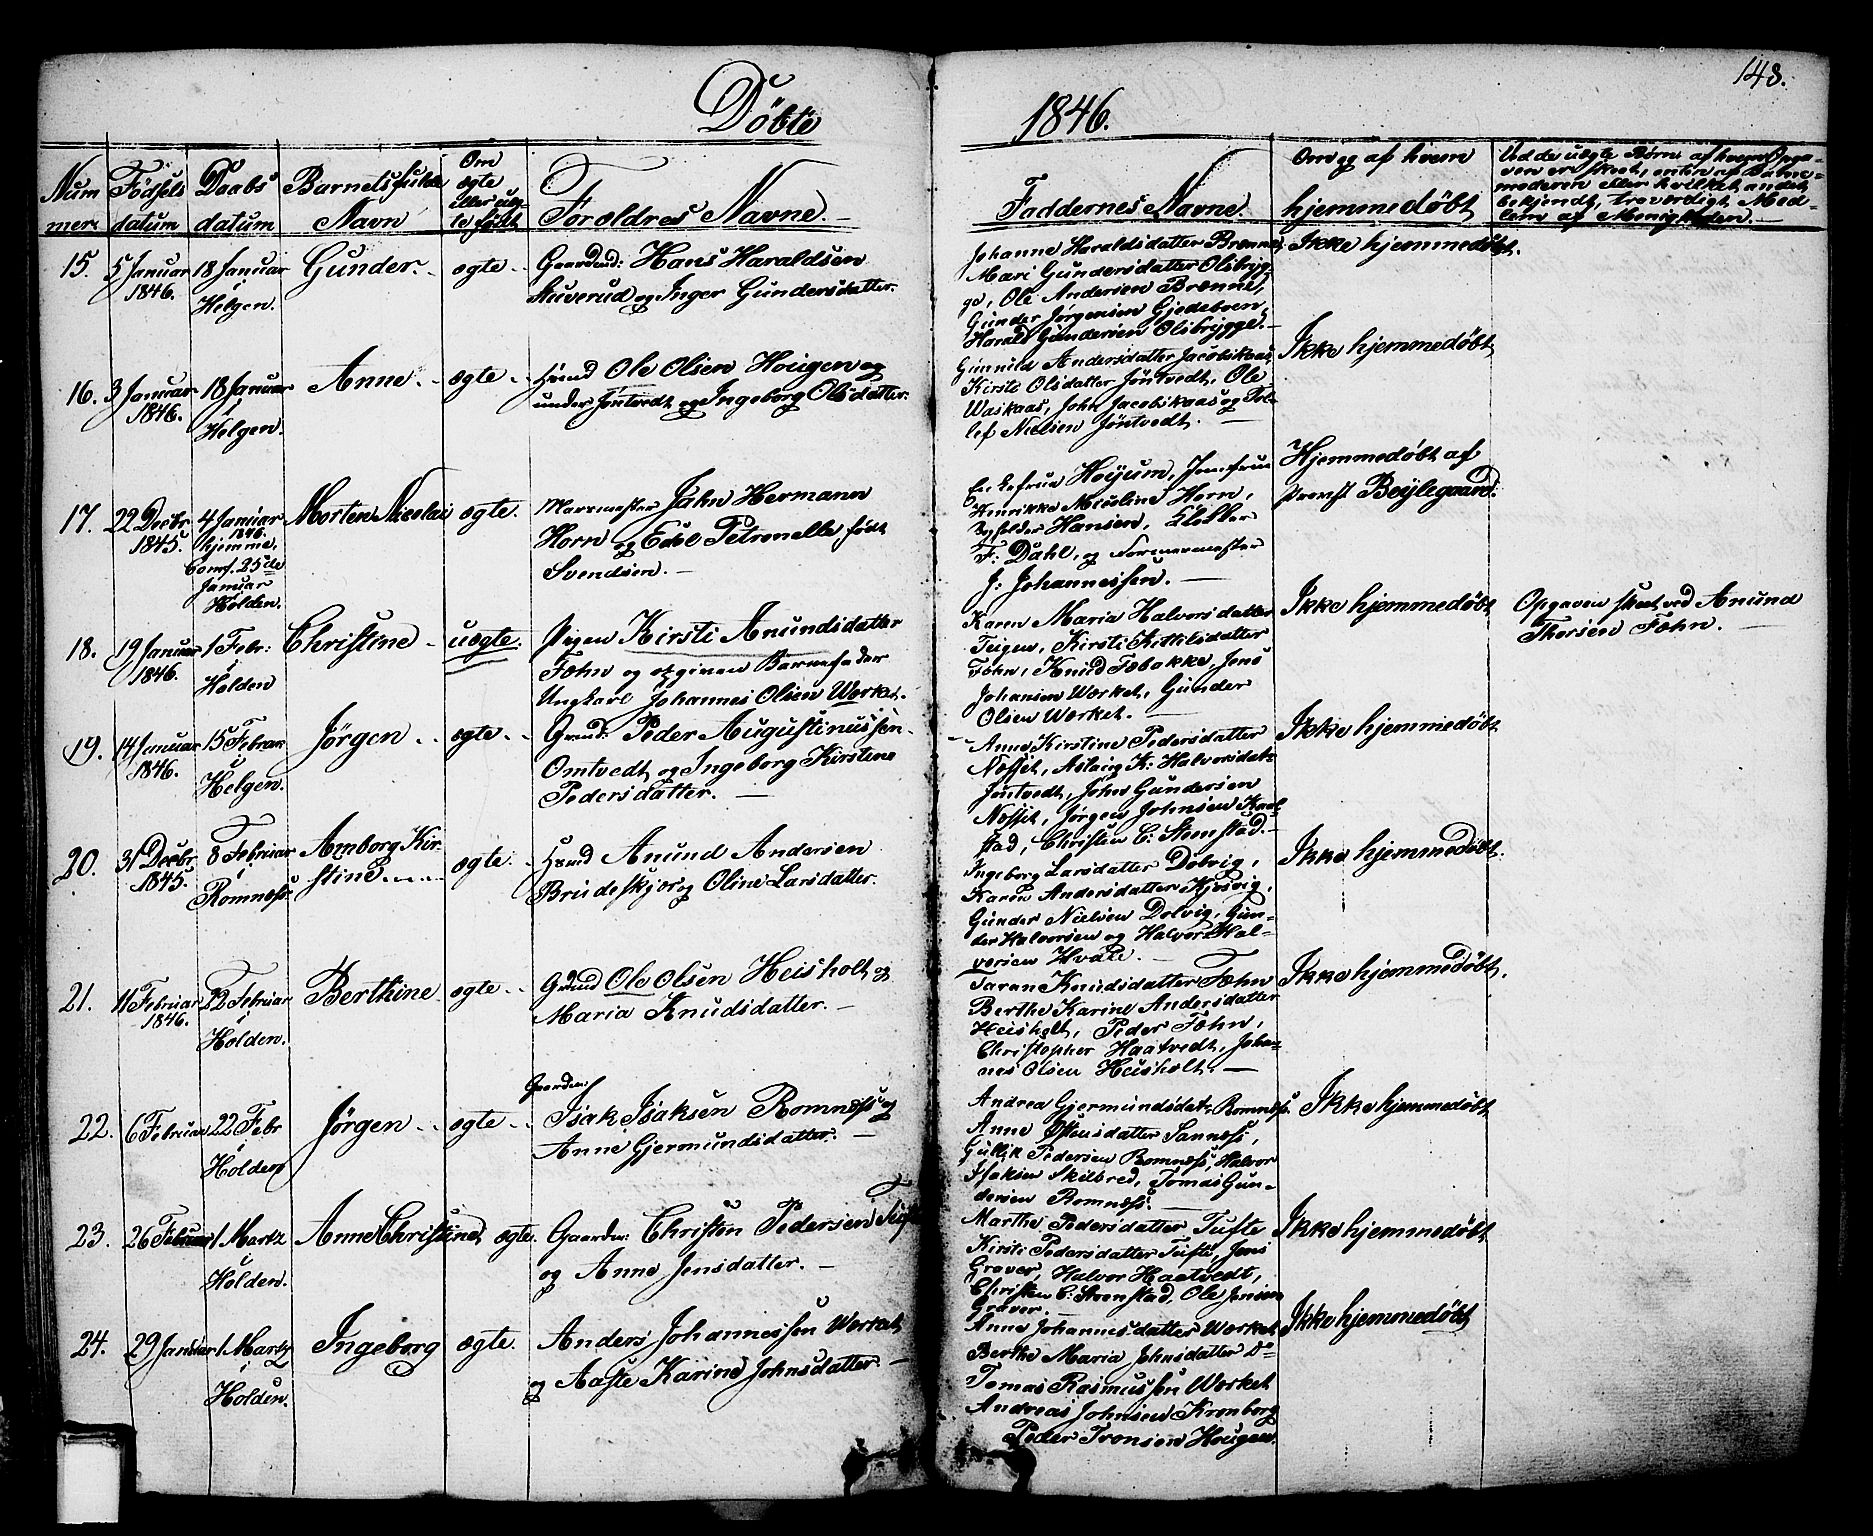 148.
Döbte
1846.
Num
mer.
Födsels
datum
Daabs
datum
Barnets fulde
Navn
Om
ægte
eller uæg
te födt
Foræeldres Navne.
Faddernes Navne.
Om og af hvem
hjemmedöbt
Ved de uægte Börn, af hvem Opga-
ven er skeet, enten af Barne-
moderen eller hvilket andet
bekjendt, troværdigt Med-
lem af Menigheden.
15.
5 Januar
1846.
18 Januar
i
Helgen.
Gunder.
ægte
Gaardmd: Hans Haraldsen
Stuverud og Inger Gundersdatter.
Johanne Haraldsdatter Brenne,
Mari Gundersdatter Olsbryg-
ge, Ole Andersen Brenne,
Gunder Jörgensen Gjedeboen,
Harald Gundersen Olsbrygge.
Ikke hjemmedöbt.
16.
3 Januar
1846.
18 Januar
i
Helgen.
Anne
ægte
Huusmd Ole Olsen Hougen og
under Jöntvedt og Ingeborg Olsdatter.
Gunnild Andersdatter Jacobskaas,
Kirsti Olsdatter Jöntvedt, Ole
Waskaas, John Jacobskaas og Tol-
lef Nielsen Jöntvedt.
Ikke hjemmedöbt
17.
22 Decbr
1845.
4 Januar
1846.
hjemme,
Comf. 25de
Januar
Holden.
Morten Nicolai
ægte.
Marsmester John Hermann
Horn og Edel Petronelle, födt
Svendsen.
Enkefrue Höyum, Jomfrue
Henrikke Nicoline Horn,
Hansen, Klokker
F: Dahl, og Formermester
J: Johannessen.
Hjemmedöbt af
Provst Beylegaard.
18.
19 Januar
1846.
1 Febr:
i
Holden
Christine
uægte.
Pigen Kirsti Anundsdatter
Fæhn og opgiven Barnefader
Ungkarl Johannes Olsen Værket.
Karen Maria Halvorsdatter
Teigen, Kirsti Kittilsdatter
Fæhn, Knud Tobakke, Jens
Johansen Værket, Gunder
Olsen Værket.
Ikke hjemmedöbt
Opgaven skeet ved Anund
Thorsen Fæhn.
19.
14 Januar
1846.
15 Februar
i
Helgen.
Jörgen
ægte
Grmd: Peder Augustinussen
Omtvedt og Ingeborg Kirstine
Pedersdatter.
Anne Kirstine Pedersdatter
Næsset, Aslaug K: Halvorsdat:
Jöntvedt, John Gundersen
Næsset, Jörgen Johnsen Kaal-
stad, Christen C: Steenstad.
Ikke hjemmedöbt
20.
31 Decbr.
1845.
8 Februar
i
Romnæss.
Amborg Kir-
stine
ægte.
Husmd Anund Andersen
Brudeskjor og Oline Larsdatter.
Ingeborg Larsdatter Dolvig,
Karen Andersdatter Kjosvig,
Gunder Nielsen Dolvig, Gun-
der Halvorsen og Halvor Hal-
vorsen Hvale.
Ikke hjemmedöbt.
21.
11 Februar
1846.
22 Februar
i
Holden.
Berthine
ægte
Grmd Ole Olsen Heisholt og
Maria Knudsdatter.
Taran Knudsdatter Fæhn
Berthe Karine Andersdatter
Heisholt, Peder Fæhn,
Christopher Haatvedt, Johan-
nes Olsen Heisholt.
Ikke hjemmedöbt.
22.
6 Februar
22 Febr
i
Holden
Jörgen
ægte
Gaardmd:
Isak Isaksen Romnæss og
Anne Gjermundsdatter.
Andrea Gjermundsdat: Romnæss.
Anne Östensdatter Sannæss,
Gullik Pedersen Romnæss, Halvor
Isaksen Skilbred, Tomas Gun-
dersen Romnæss.
Ikke hjemmedöbt
23.
26 Februar
1 Martz
i
Holden.
Anne Christine
ægte.
Gaardm: Christen Pedersen Tufte
og Anne Jensdatter.
Marthe Pedersdatter Tufte
Kirsti Pedersdatter Tufte, Jens
Graver, Halvor Haatvedt,
Christen C: Steenstad, Ole Jensen
Graver.
Ikke hjemmedöbt
24.
29 Januar
1. Martz
i
Holden.
Ingeborg
ægte.
Anders Johannessen Værket
og Aaste Karine Johnsdatter.
Anne Johannesdatter Værket
Berthe Maria Johnsdatter Do
Tomas Rasmussen Værket
Andreas Johnsen Kronborg
Peder Tronsen Hougen.
Ikke hjemmedöbt